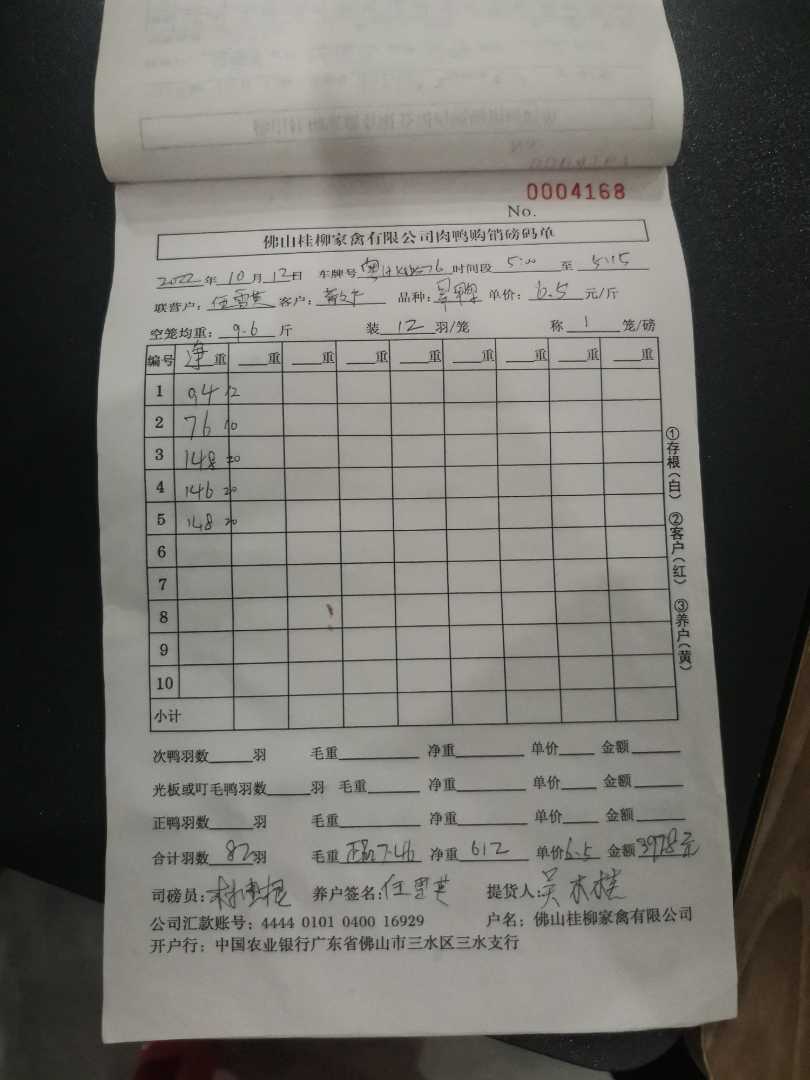 0004168
No.
佛山桂柳家禽有限公司肉鸭购销磅码单
2022年10月12日 车牌号 粤 时间段 5:00 至 5:15
联营户：任雪英 客户： 品种： 单价：6.5元/斤
空笼均重：9.6斤 装12羽/笼 称1笼/磅
编号 净重 重 重 重 重 重 重 重 重
1 94 12
2 76 10
3 148 20
4 146 20
5 148 20
6
7
8
9
10
小计
①存根(白) ②客户(红) ③养户(黄)
次鸭羽数 羽 毛重 净重 单价 金额
光板或叮毛鸭羽数 羽 毛重 净重 单价 金额
正鸭羽数 羽 毛重 净重 单价 金额
合计羽数82羽 毛重 7.46 净重612 单价6.5 金额3978元
司磅员： 养户签名：任雪英 提货人：吴木桂
公司汇款账号：4444 0101 0400 16929 户名：佛山桂柳家禽有限公司
开户行：中国农业银行广东省佛山市三水区三水支行